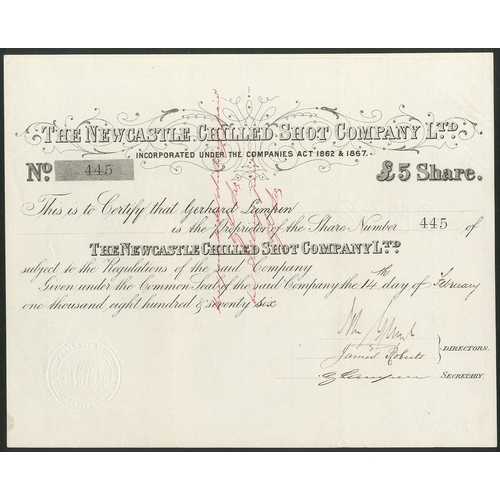 THE NEWCASTLE CHILLED SHOT COMPANY LTD.
INCORPORATED UNDER THE COMPANIES ACT 1862 & 1867.
No. 445 £5 Share.
This is to Certify that Gerhard Lampen
is the Proprietor of the Share Number 445 of
THE NEWCASTLE CHILLED SHOT COMPANY LTD
subject to the Regulations of the said Company
Given under the Common Seal of the said Company the 14th day of February
one thousand eight hundred & seventy six
James Roberts
DIRECTORS.
G Lampen SECRETARY.